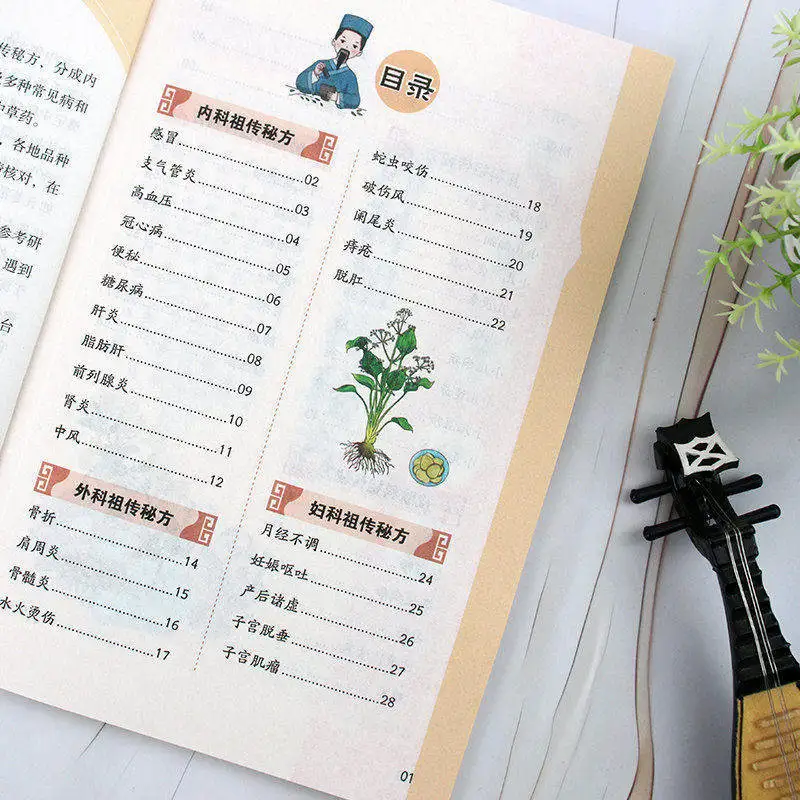 传秘方，分成内
多种常见病和
中草药。
，各地品种
核对，在
参考研
遇到
台
目录
内科祖传秘方
感冒……02
支气管炎……03
高血压……04
冠心病……05
便秘……06
糖尿病……07
肝炎……08
脂肪肝……09
前列腺炎……10
肾炎……11
中风……12
外科祖传秘方
骨折……14
肩周炎……15
骨髓炎……16
水火烫伤……17
蛇虫咬伤……18
破伤风……19
阑尾炎……20
痔疮……21
脱肛……22
妇科祖传秘方
月经不调……24
妊娠呕吐……25
产后诸虚……26
子宫脱垂……27
子宫肌瘤……28
01